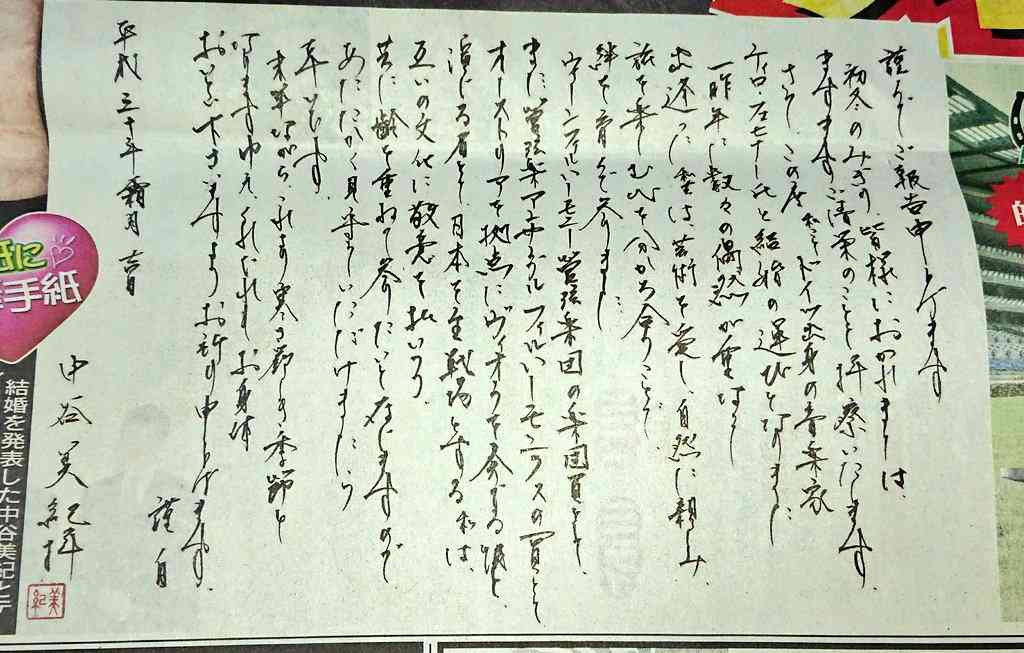 謹んでご報告申し上げます
初冬のみぎり、皆様におかれましては、
ますますご清栄のことと拝察いたします。
さて、この度 私ことドイツ出身の音楽家
ティロ・フェヒナー氏と結婚の運びとなりました
一昨年に数々の偶然が重なり
出逢った私共は、芸術を愛し、自然に親しみ、
旅を楽しむひとときを分かち合うことで
絆を育んで参りました
ウィーン・フィルハーモニー管弦楽団の楽団員として
また、管弦楽アンサンブル フィルハーモニクスの一員として
オーストリアを拠点にヴィオラを奏する彼と、
演じる者として日本を主戦場とする私は、
互いの文化に敬意を払いつつ
共に齢を重ねて参りたいと存じますので
あたたかく見守っていただけましたら
幸いです
末筆ながら、これより寒さ厳しき季節と
なりますゆえ、くれぐれもお身体
おいとい下さいますようお祈り申し上げます。
謹白
平成三十年霜月吉日
中谷美紀拝
美紀
紙に
手紙
結婚を発表した中谷美紀とテ